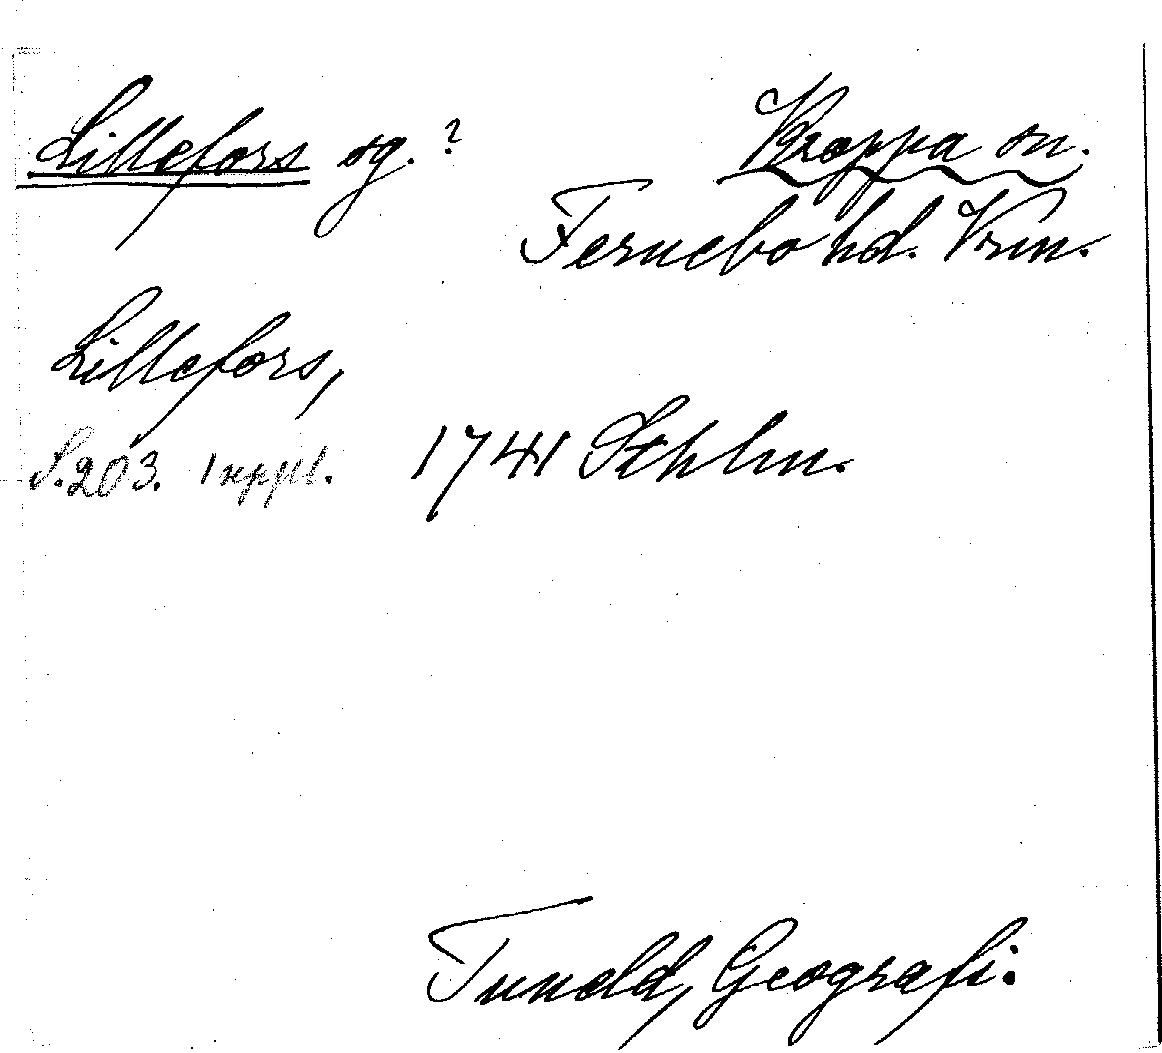 Lillefors sg.? Kroppa sn.
Fernebo hd. Vrm.
Lillefors,
S. 203. 1 uppl. 1741 Sthlm.
Tuneld, Geografi.